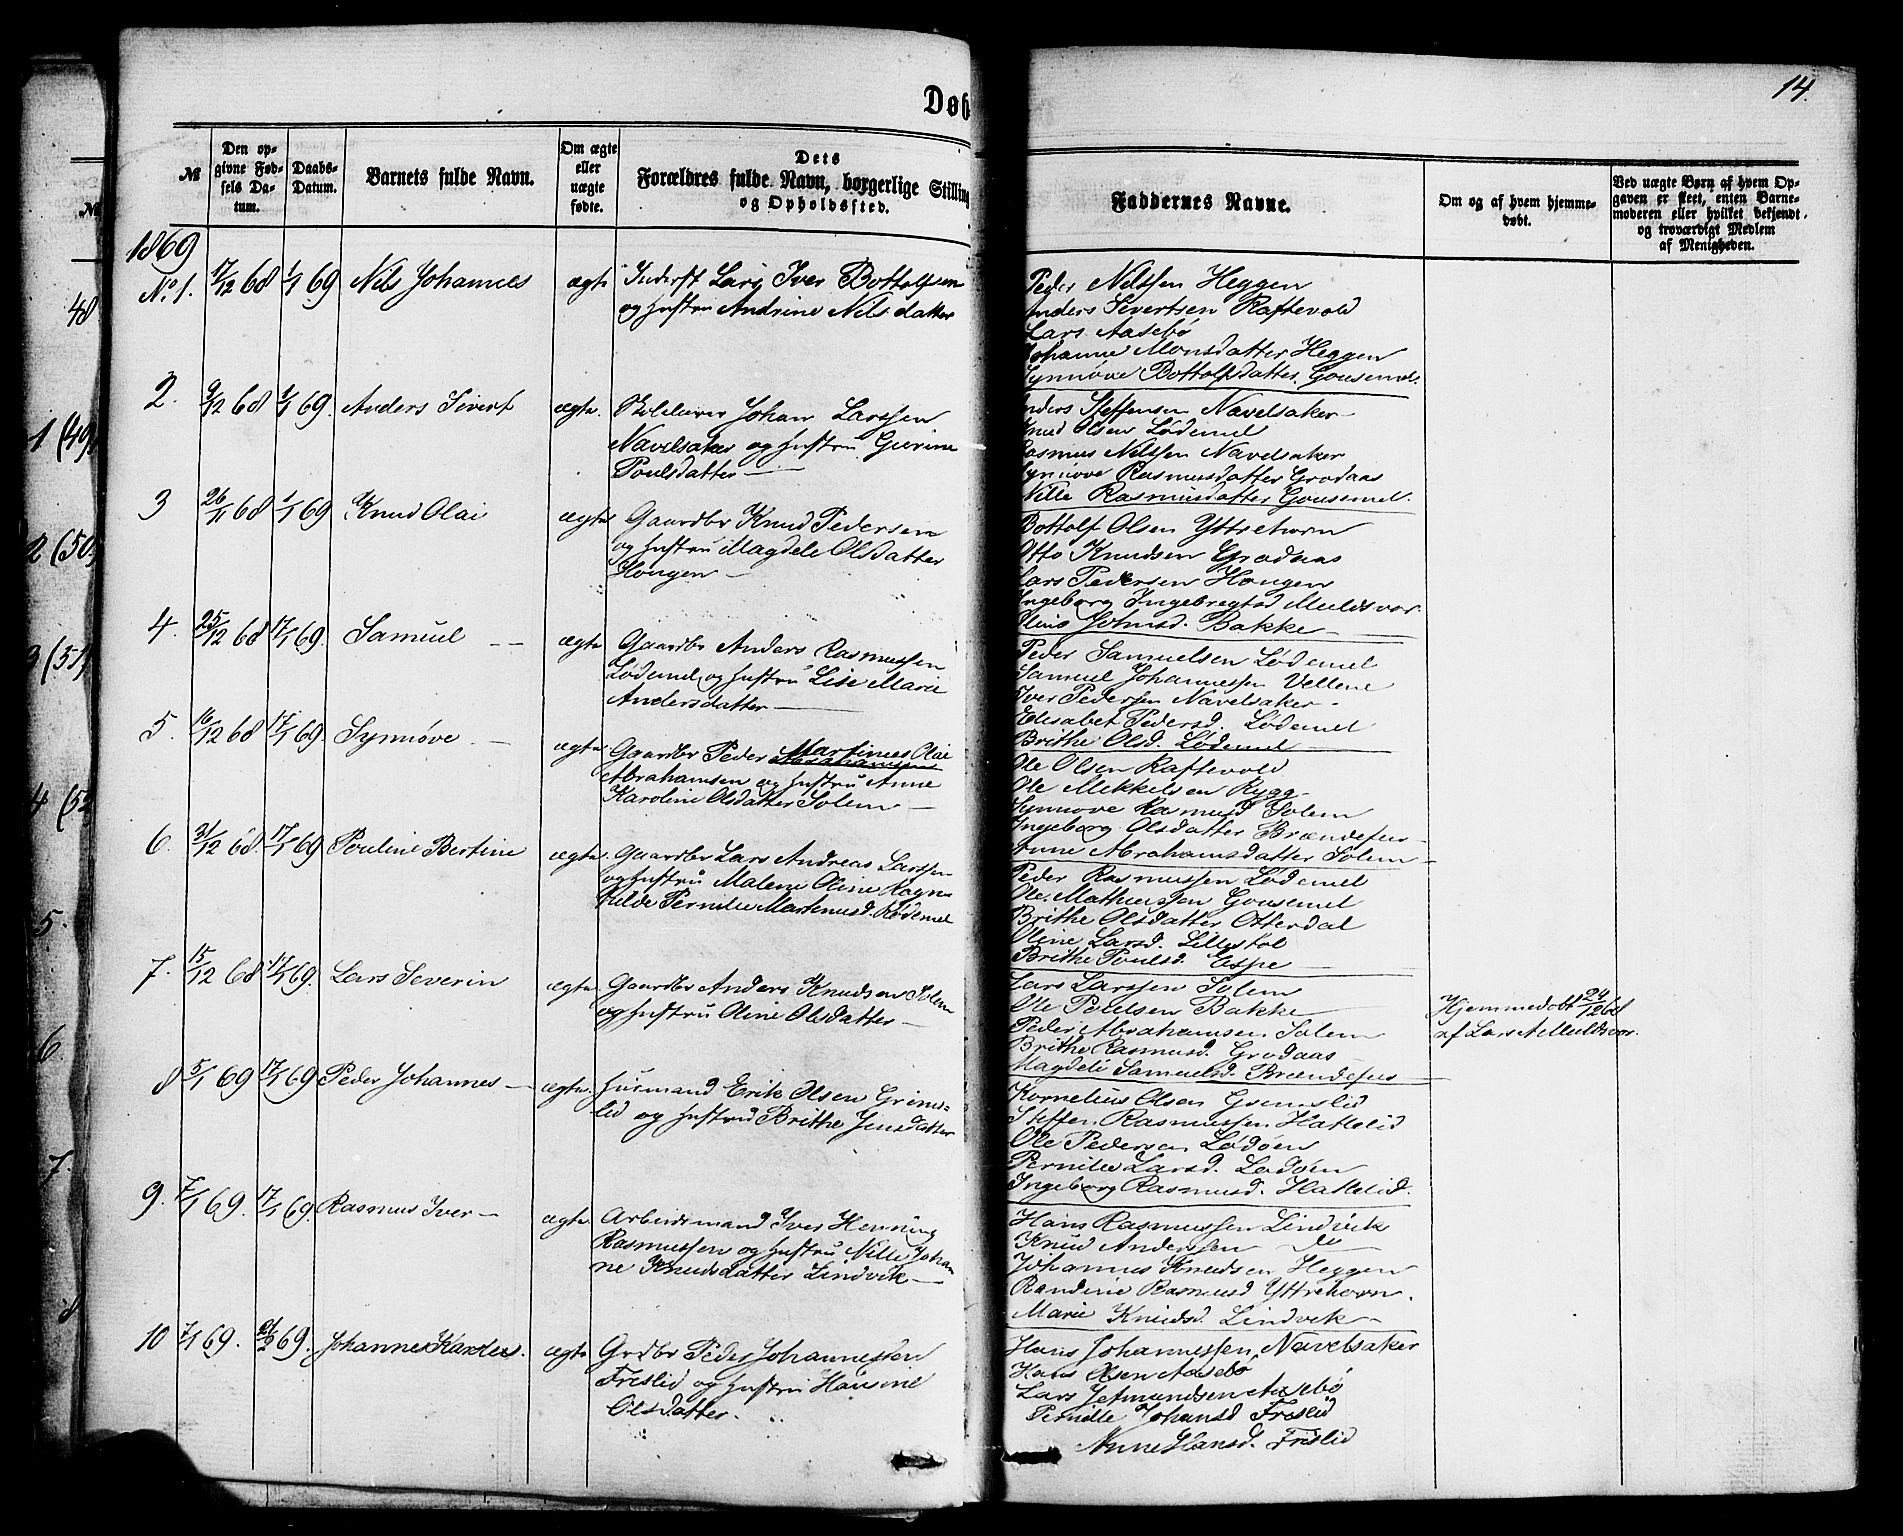 14.
Døb
№
Den op-
givne Fød-
sels Da-
tum.
Daabs-
Datum.
Barnets fulde Navn.
Om ægte
eller
uægte
fødte.
Dets
Forældres fulde Navn, borgerlige Stilling
og Opholdssted.
Faddernes Navne.
Om og af hvem hjemme-
døbt.
Ved uægte Børn af hvem Op-
gaven er skeet, enten Barne-
moderen eller hvilket bekjendt
og troværdigt Medlem
af Menigheden.
№
48
1 (49)
2 (50)
3 (51)
4 (52
5.
6.
7.
8
1869
No 1. 17/12 68 1/1 69 Nils Johannes ægte Inderst Lars Iver Bottolfsen
og hustru Andrine Nilsdatter
Peder Nilssen Heggen
Anders Sivertsen Raftevold
Lars Aasebø
Johanne Monsdatter Heggen
Synnøve Bottolfsdatter Gousemel.
2. 9/12 68 1/1 69. Anders Sivert ægte. Johan Larssen
Navelsaker og hustru Gurine
Poulsdatter
Anders Steffensen Navelsaker
Knud Olsen Lødemel
Rasmus Nilssen Navelsaker
Synnøve Rasmusdatter Grodaas
Nille Rasmusdatter Gousemel.
3 26/11 68 1/1 69 Knud Olai ægte Gaardbr Knud Pedersen
og hustru Magdele Olsdatter
Hougen
Bottolf Olsen Yttrehorn
Otto Knudsen Grodaas
Lars Pedersen Hougen
Ingeborg Ingebregtsd Muldsvor
Oline Johnsd. Bakke
4. 25/12 68 17/1 69. Samuel ægte Gaardbr Anders Rasmussen
Lødemel og hustru Lise Marie
Andersdatter
Peder Samuelsen Lødemel
Samuel Johannessen Vellene
Iver Pedersen Navelsaker
Elisabet Pedersd. Lødemel
Brithe Olsd. Lødemel
5. 16/12 68 17/1 69. Synnøve ægte Gaardbr Peder Martinus Olai
Abrahamsen og hustru Anne
Karoline Olsdatter Solem
Ole Olsen Raftevold
Ole Mikkelsen Rygg
Synnøve Rasmusd Solem
Ingeborg Olsdatter Brændefur
Anne Abrahamsdatter Solem
6. 31/12 68. 17/1 69 Pouline Bertine ægte. Gaardbr Lars Andreas Larssen
og hustru Malene Oline Ragn-
hilde Pernille Martinusd. Lødemel
Peder Rasmussen Lødemel
Ole Mathiassen Gousemel
Brithe Olsdatter Otterdal
Oline Larsd. Lillestøl
Brithe Poulsd. Espe
7. 15/12 68 17/1 69. Lars Severin ægte Gaardbr Anders Knudsen Solem
og hustru Oline Olsdatter
Lars Larssen Solem
Ole Pedersen Bakke
Peder Abrahamsen Solem
Brithe Rasmusd. Grodaas
Magdeli Samuelsd. Brændefur
Hjemmedøbt 24/12 68
af Lars A Muldsvor.
8 5/1 69 17/1 69 Peder Johannes ægte. Huusmand Erik Olsen Grims-
lid og hustru Brithe Jensdatter
Kornelius Olsen Grimslid
Steffen Rasmussen Hattelid
Ole Pedersen Lødøen
Pernille Larsd. Lødøen
Ingeborg Rasmusd. Hattelid.
9. 7/1 69. 17/1 69. Rasmus Iver ægte Arbeidsmand Iver Henning
Rasmussen og hustru Nille Johan
ne Knudsdatter Lindvik
Hans Rasmussen Lindvik
Knud Andersen do
Johannes Knudsen Heggen
Randine Rasmusd Yttrehorn.
Marie Knudsd. Lindvik
10 7/1 69. 21/2 69. Johannes Karolus. ægte Grdbr Peder Johannessen
Frislid og hustru Hansine
Olsdatter.
Hans Johannessen Navelsaker
Hans Olsen Aasebø
Lars Jetmundsen Aasebø
Pernille Johansd Frislid
Anne Hansd. Frislid